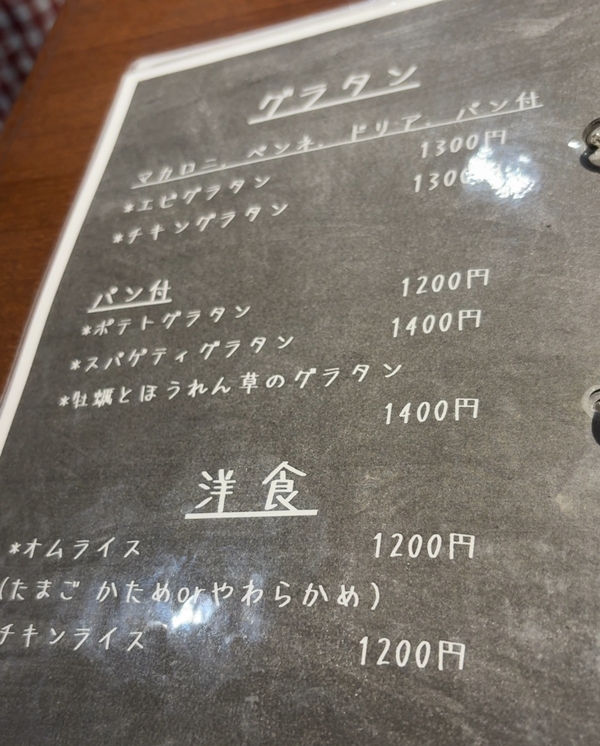 グラタン
マカロニ、ペンネ、ドリア、パン付
*エビグラタン 1300円
*チキングラタン 1300円
パン付
*ポテトグラタン 1200円
*スパゲティグラタン 1400円
*牡蠣とほうれん草のグラタン
1400円
洋食
*オムライス 1200円
(たまご かためorやわらかめ)
チキンライス 1200円